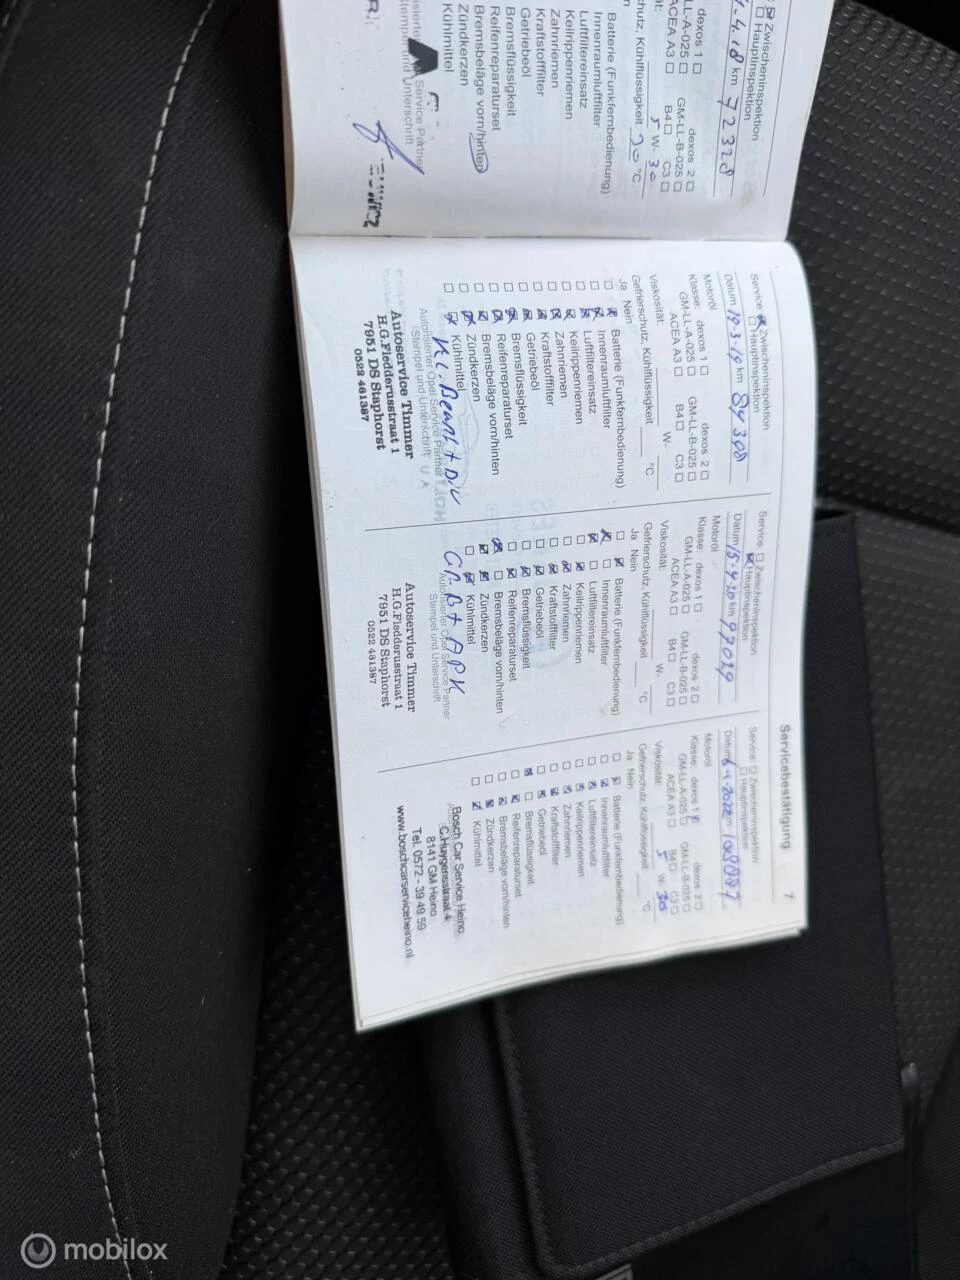 ☒ Zwischeninspektion
☐ Hauptinspektion
4.18 km 72328
dexos 1 ☐ dexos 2 ☐
LL-A-025 ☐ GM-LL-B-025 ☐
ACEA A3 ☐ B4 ☐ C3 ☐
5 W- 30
hutz, Kühlflüssigkeit 30 °C
Batterie (Funkfernbedienung)
Innenraumluftfilter
Luftfiltereinsatz
Keilrippenriemen
Zahnriemen
Kraftstofffilter
Getriebeöl
Bremsflüssigkeit
Reifenreparaturset
Bremsbeläge vorn/hinten
Zündkerzen
Kühlmittel
Service Partner
Stempel und Unterschrift
Service: ☒ Zwischeninspektion
☐ Hauptinspektion
Datum 19-3-19 km 84308
Motoröl
Klasse: dexos 1 ☐ dexos 2 ☐
GM-LL-A-025 ☐ GM-LL-B-025 ☐
ACEA A3 ☐ B4 ☐ C3 ☐
Viskosität: W-
Gefrierschutz, Kühlflüssigkeit °C
Ja Nein
☐ ☒ Batterie (Funkfernbedienung)
☐ ☒ Innenraumluftfilter
☐ ☒ Luftfiltereinsatz
☐ ☒ Keilrippenriemen
☐ ☒ Zahnriemen
☐ ☒ Kraftstofffilter
☐ ☒ Getriebeöl
☐ ☒ Bremsflüssigkeit
☐ ☒ Reifenreparaturset
☐ ☒ Bremsbeläge vorn/hinten
☐ ☒ Zündkerzen
☐ ☒ Kühlmittel
KL. Beurt +
Autorisierter Opel Service Partner
Stempel und Unterschrift
Autoservice Timmer
H.G.Fledderusstraat 1
7951 DS Staphorst
0522 461387
Service: ☐ Zwischeninspektion
☒ Hauptinspektion
Datum 15-4-20 km 97029
Motoröl
Klasse: dexos 1 ☐ dexos 2 ☐
GM-LL-A-025 ☐ GM-LL-B-025 ☐
ACEA A3 ☐ B4 ☐ C3 ☐
Viskosität: W-
Gefrierschutz, Kühlflüssigkeit °C
Ja Nein
☐ ☒ Batterie (Funkfernbedienung)
☒ ☐ Innenraumluftfilter
☒ ☐ Luftfiltereinsatz
☐ ☒ Keilrippenriemen
☐ ☒ Zahnriemen
☐ ☒ Kraftstofffilter
☐ ☒ Getriebeöl
☐ ☒ Bremsflüssigkeit
☐ ☒ Reifenreparaturset
☒ ☐ Bremsbeläge vorn/hinten
☒ ☒ Zündkerzen
☐ ☒ Kühlmittel
GR. B + APK
Autorisierter Opel Service Partner
Stempel und Unterschrift
Autoservice Timmer
H.G.Fledderusstraat 1
7951 DS Staphorst
0522 461387
Servicebestätigung 7
Service: ☐ Zwischeninspektion
☐ Hauptinspektion
Datum 2022 km 108087
Motoröl
Klasse: dexos 1 ☒ dexos 2 ☐
GM-LL-A-025 ☐ GM-LL-B-025 ☐
ACEA A3 ☐ B4 ☐ C3 ☐
Viskosität: 5 W- 30
Gefrierschutz, Kühlflüssigkeit °C
Ja Nein
☐ ☒ Batterie (Funkfernbedienung)
☐ ☒ Innenraumluftfilter
☐ ☒ Luftfiltereinsatz
☐ ☒ Keilrippenriemen
☐ ☒ Zahnriemen
☐ ☒ Kraftstofffilter
☐ ☒ Getriebeöl
☒ ☐ Bremsflüssigkeit
☐ ☒ Reifenreparaturset
☐ ☒ Bremsbeläge vorn/hinten
☐ ☒ Zündkerzen
☐ ☒ Kühlmittel
Bosch Car Service Heino
C.Huygensstraat 4
8141 GM Heino
Tel. 0572 - 39 49 59
www.boschcarserviceheino.nl
mobilox